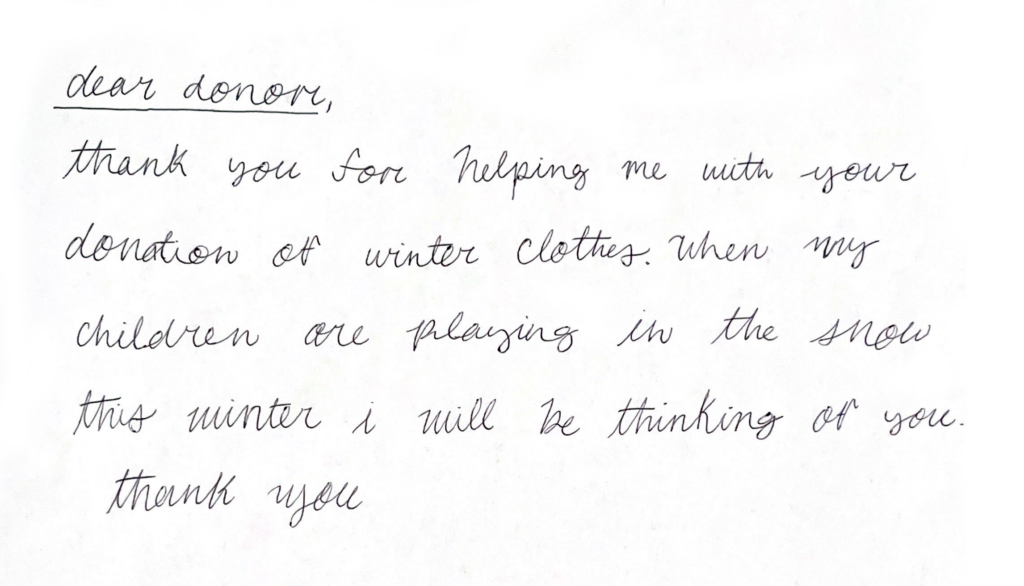 dear donor,
thank you for helping me with your
donation of winter clothes. When my
children are playing in the snow
this winter i will be thinking of you.
thank you